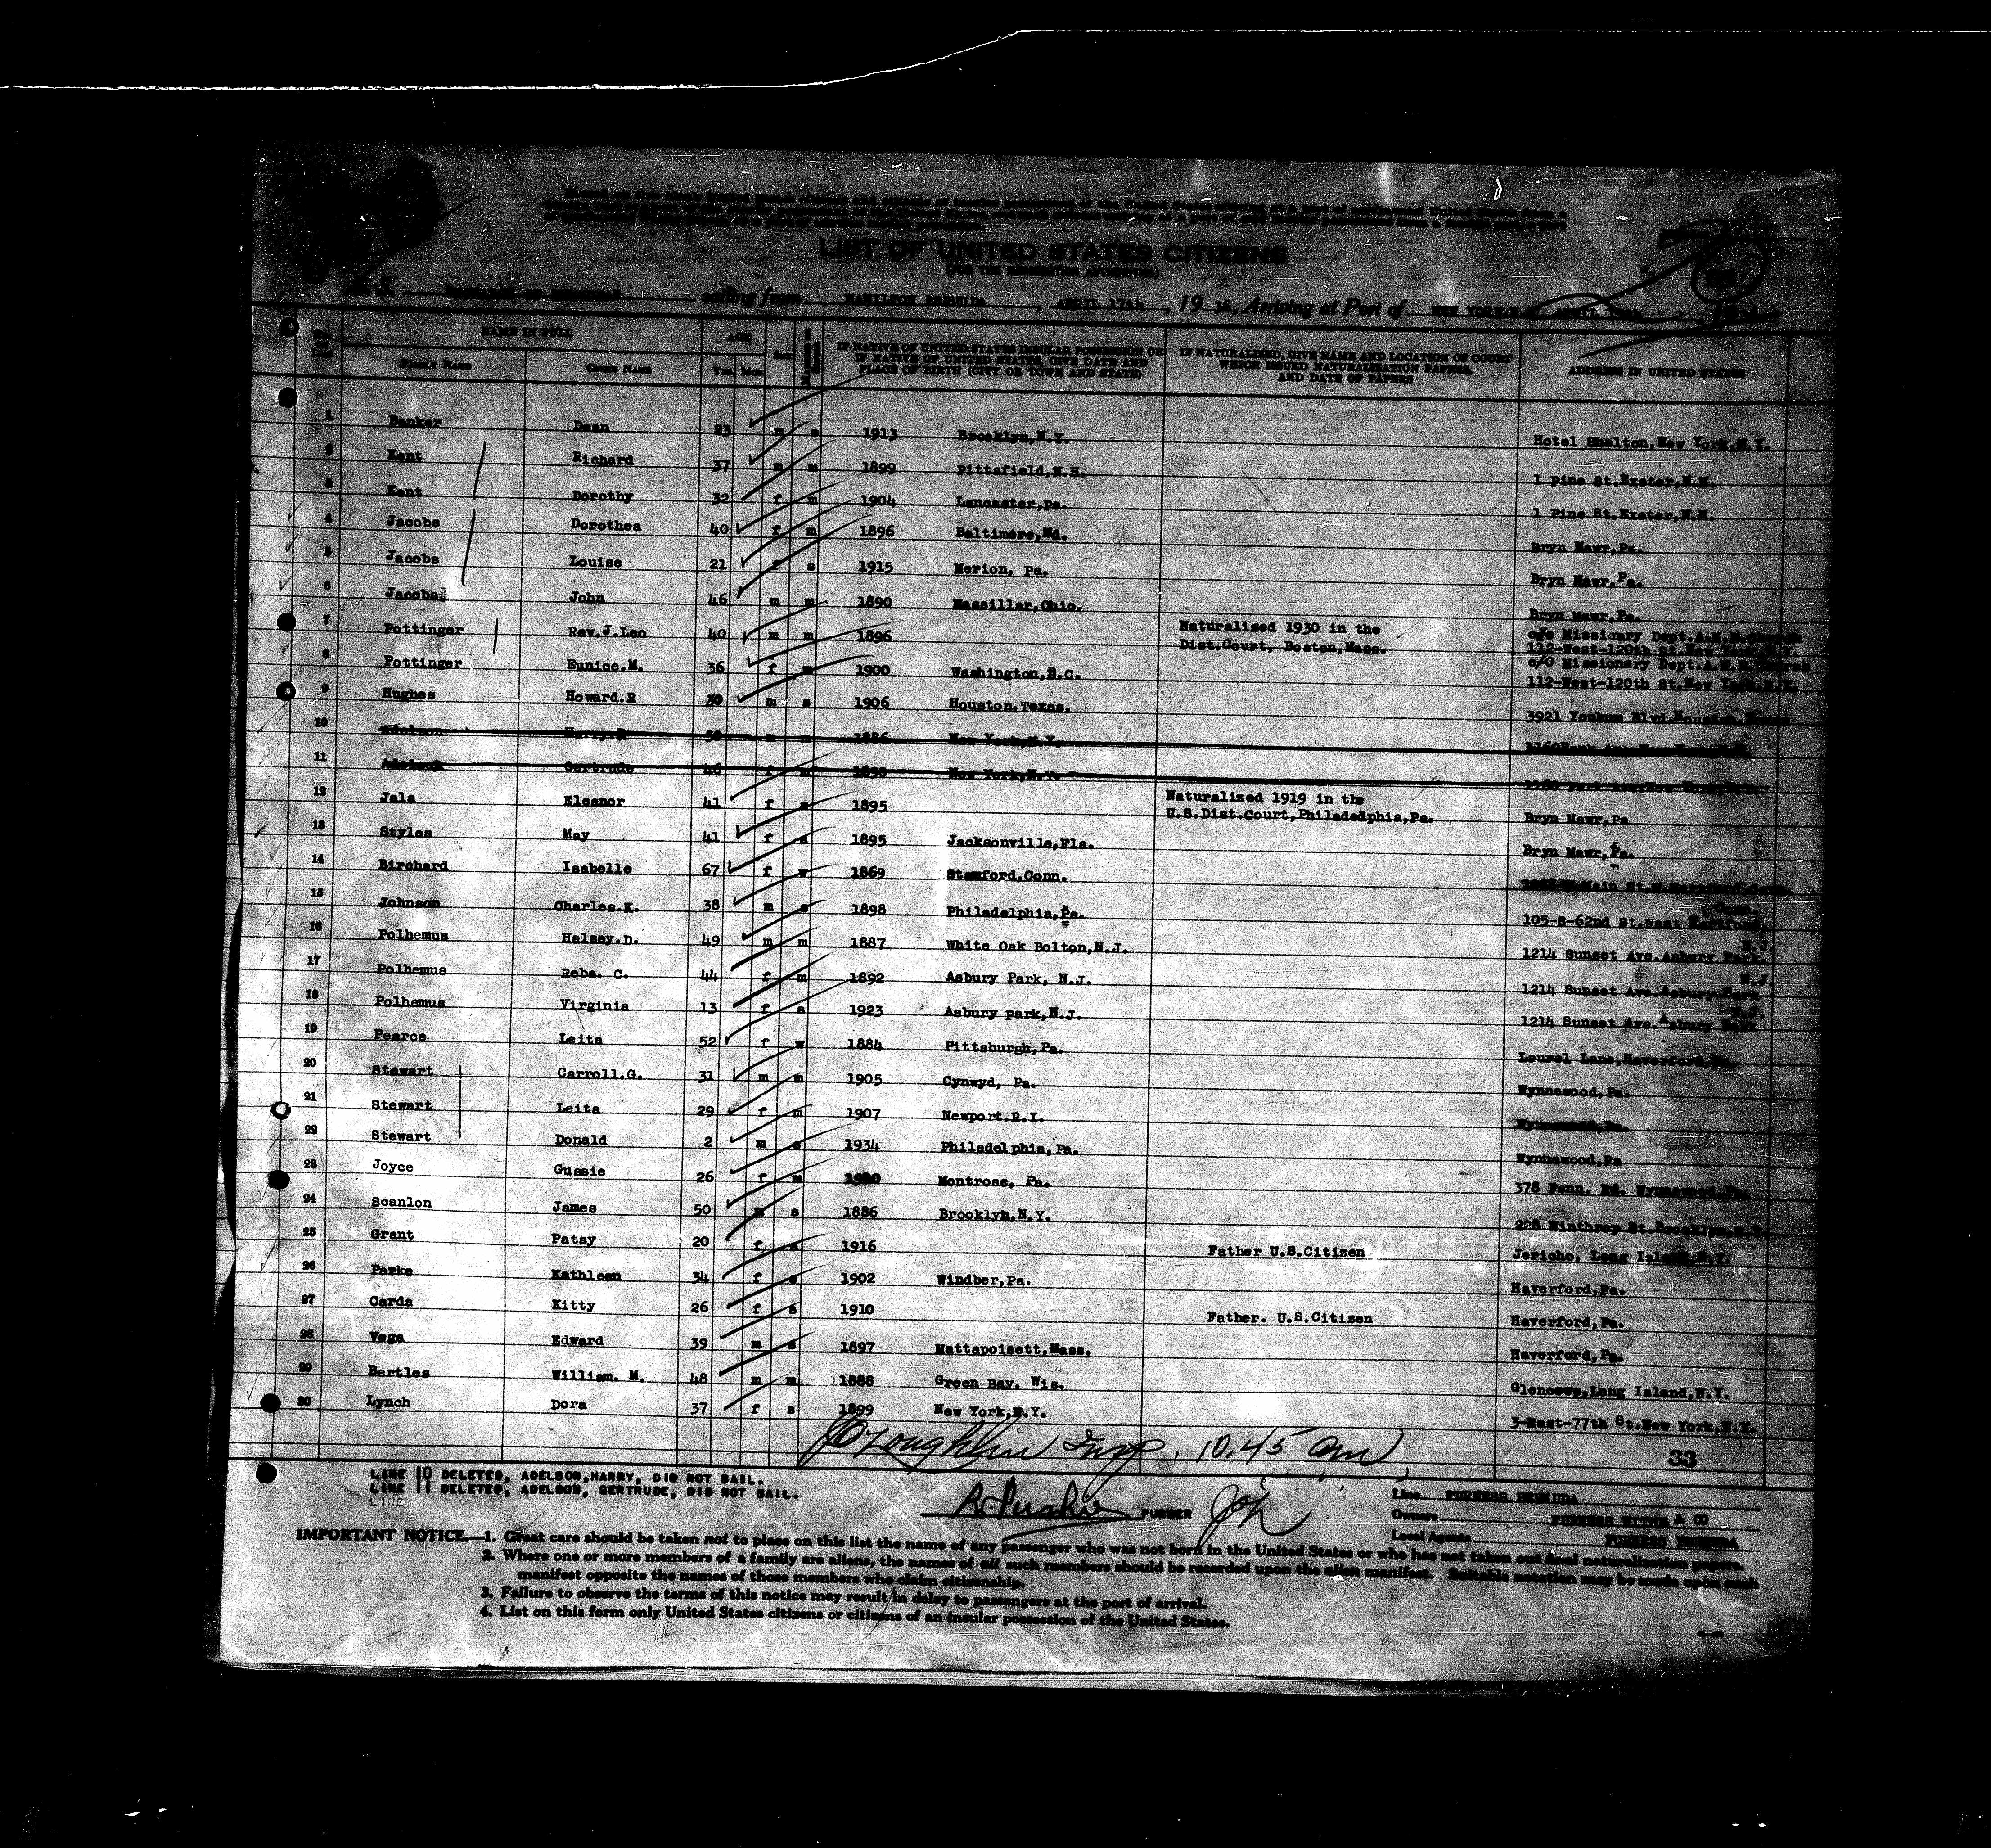 LIST OF UNITED STATES CITIZENS
(FOR THE IMMIGRATION AUTHORITIES)
sailing from HAMILTON BERMUDA, APRIL 17th, 19 36, Arriving at Port of NEW YORK
NAME IN FULL AGE Sex
FAMILY NAME GIVEN NAME Yrs. Mos.
IF NATIVE OF UNITED STATES INSULAR POSSESSION OR
IF NATIVE OF UNITED STATES, GIVE DATE AND
PLACE OF BIRTH (CITY OR TOWN AND STATE)
IF NATURALIZED, GIVE NAME AND LOCATION OF COURT
WHICH ISSUED NATURALIZATION PAPERS,
AND DATE OF PAPERS
ADDRESS IN UNITED STATES
1 Banker Dean 23 m s 1913 Brooklyn,N.Y. Hotel Shelton,New York,N.Y.
2 Kent Richard 37 m m 1899 Pittsfield,N.H. 1 pine St.Exeter,N.H.
3 Kent Dorothy 32 f m 1904 Lancaster,pa. 1 Pine St.Exeter,N.H.
4 Jacobs Dorothea 40 f m 1896 Baltimore,Md. Bryn Mawr,Pa.
5 Jacobs Louise 21 f s 1915 Merion, pa. Bryn Mawr,Pa.
6 Jacobs John 46 m m 1890 Massillar,Ohio. Bryn Mawr,Pa.
7 Pottinger Rev.J.Leo 40 m m 1896 Naturalized 1930 in the Dist.Court, Boston,Mass. c/o Missionary Dept.A.M.E.Church 112-West-120th St.New York,N.Y.
8 Pottinger Eunice.M. 36 f m 1900 Washington,D.C. c/O Missionary Dept.A.M.E.Church 112-West-120th St.New York,N.Y.
9 Hughes Howard.R 30 m s 1906 Houston,Texas. 3921 Yoakum Blvd.Houston,
10 Adelson Harry 50 m m 1886 New York,N.Y.
11 Adelson Gertrude 46 f m 1890 New York,N.Y.
12 Jala Eleanor 41 f s 1895 Naturalized 1919 in the U.S.Dist.Court,Philadelphia,Pa. Bryn Mawr,Pa
13 Styles May 41 f s 1895 Jacksonville,Fla. Bryn Mawr,Pa.
14 Birchard Isabelle 67 f w 1869 Stamford.Conn. Main St.W.Hartford,Conn.
15 Johnson Charles.K. 38 m s 1898 Philadelphia,Pa. 105-S-62nd St.West
16 Polhemus Halsey.D. 49 m m 1887 White Oak Bolton,N.J. 1214 Sunset Ave.Asbury Park. N.J.
17 Polhemus Reba. C. 44 f m 1892 Asbury Park, N.J. 1214 Sunset Ave.Asbury Park N.J
18 Polhemus Virginia 13 f s 1923 Asbury park,N.J. 1214 Sunset Ave.Asbury Park N.J.
19 Pearce Leita 52 f w 1884 Pittsburgh,Pa. Laurel Lane,Haverford,Pa.
20 Stewart Carroll.G. 31 m m 1905 Cynwyd, Pa. Wynnewood,Pa.
21 Stewart Leita 29 f m 1907 Newport.R.I. Wynnewood,Pa.
22 Stewart Donald 2 m s 1934 Philadelphia,Pa. Wynnewood,Pa
23 Joyce Gussie 26 f m Montrose, Pa. 378 Penn. Rd. Wynnewood,Pa.
24 Scanlon James 50 s 1886 Brooklyn,N.Y. 228 Winthrop St.Brooklyn,N.Y.
25 Grant Patsy 20 f s 1916 Father U.S.Citizen Jericho, Long Island,N.Y.
26 Parke Kathleen 34 f s 1902 Windber,Pa. Haverford,Pa.
27 Carda Kitty 26 f s 1910 Father. U.S.Citizen Haverford,Pa.
28 Vega Edward 39 m s 1897 Mattapoisett,Mass. Haverford,Pa.
29 Bertles William. M. 48 m m 1888 Green Bay, Wis. Glencove,Long Island,N.Y.
30 Lynch Dora 37 f s 1899 New York,N.Y. 3-East-77th St.New York,N.Y.
O'Loughlin Insp. 10.45 am
33
LINE 10 DELETED, ADELSON,HARRY, DID NOT SAIL.
LINE 11 DELETED, ADELSON, GERTRUDE, DID NOT SAIL.
LINE
PURSER
Line FURNESS BERMUDA
Owners FURNESS WITHY & CO
Local Agents FURNESS BERMUDA
IMPORTANT NOTICE—1. Great care should be taken not to place on this list the name of any passenger who was not born in the United States or who has not taken out final naturalization papers.
2. Where one or more members of a family are aliens, the names of all such members should be recorded upon the alien manifest. Suitable notation may be made upon such
manifest opposite the names of those members who claim citizenship.
3. Failure to observe the terms of this notice may result in delay to passengers at the port of arrival.
4. List on this form only United States citizens or citizens of an insular possession of the United States.